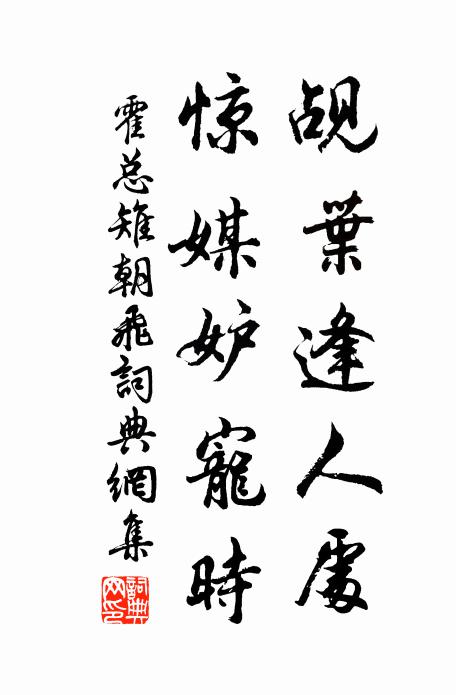 觇葉逢人處
惊媒妒寵時
霍总雉朝飛詞典網集
詞典
网印